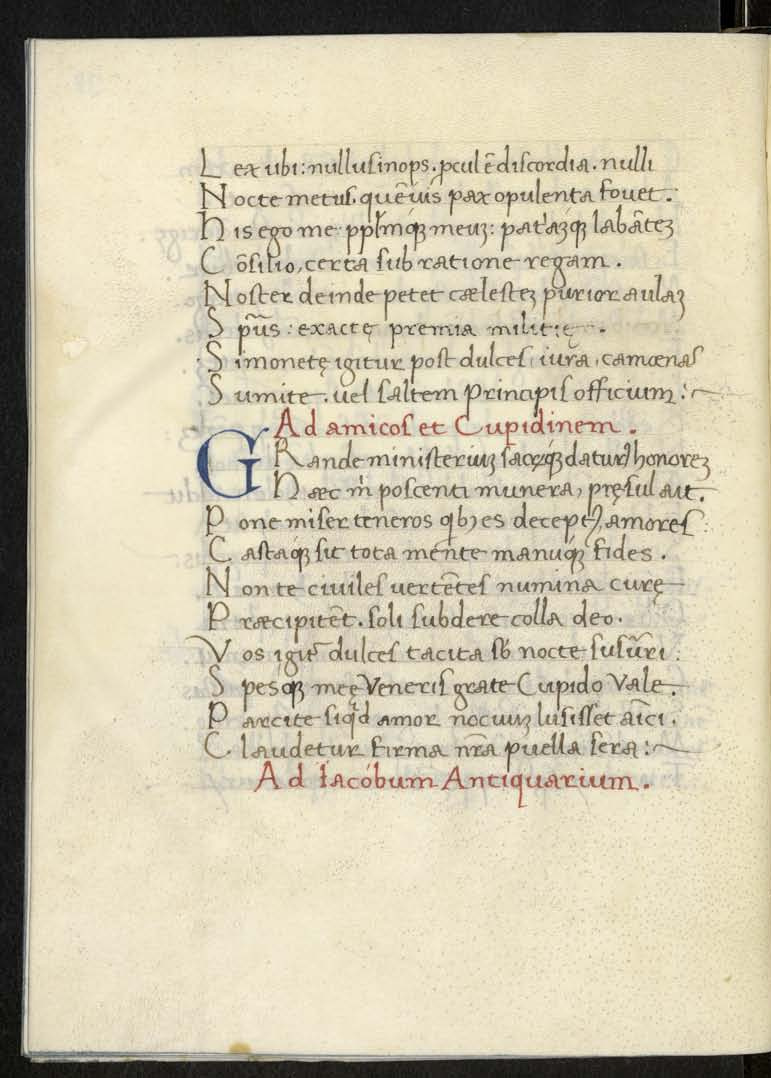 L ex ubi: nullus inops. ꝓcul ē discordia. nulli
N octe metus. quēuis pax opulenta fouet.
H is ego me pplḿqꝫ meuꝫ: patꝫqꝫ labātēꝫ
C ōsilio, certa sub ratione regam.
N oster deinde petet cælesteꝫ purior aulaꝫ
S pūs: exactę premia militię.
S imonetę igitur post dulces, iura, camœnas
S umite. uel saltem principis officium:
Ad amicos et Cupidinem.
GRande ministeriuꝫ datur honoreꝫ
H æc m̄ poscenti munera, pręsul ait.
P one miser teneros es amores:
C astaqꝫ sit tota mente manuqꝫ fides.
N on te ciuiles uertētes numina curę
P ræcipitēt. soli subdere colla deo.
V os igiť dulces tacita sƀ nocte susūri:
S pesqꝫ meę Veneris grate Cupido Vale.
P arcite siqd amor nocuuꝫ lusisset aīci.
C laudetur firma nr̄a puella sera:
Ad Iacóbum Antiquarium.